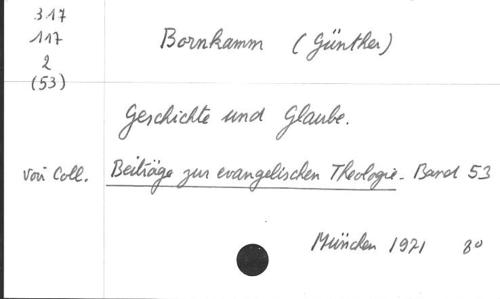 317
117
2
(53)
Bornkamm (Günther)
Geschichte und Glaube.
Voir Coll. Beiträge zur evangelischen Theologie - Band 53
München 1971 8°